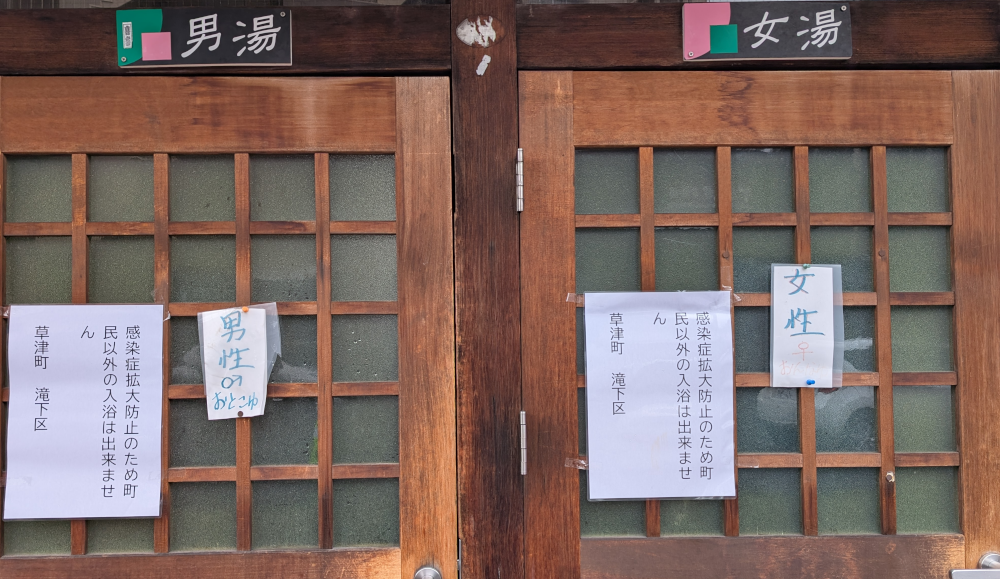 男湯
女湯
感染症拡大防止のため町
民以外の入浴は出来ませ
ん
草津町 滝下区
男
性
♂
おとこゆ
感染症拡大防止のため町
民以外の入浴は出来ませ
ん
草津町 滝下区
女
性
♀